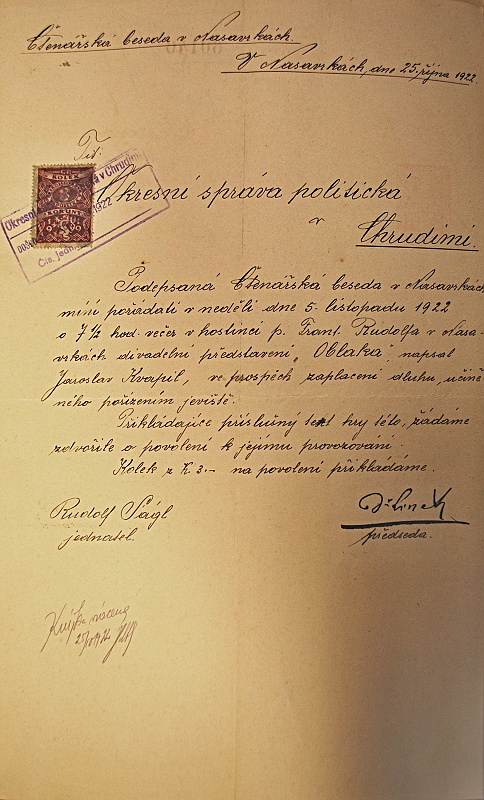 Čtenářská beseda v Nasavrkách.
V Nasavrkách, dne 25. října 1922
Tit.
Okresní správa politická
v
Chrudimi.
KOLEK
Podepsaná Čtenářská beseda v Nasavrkách
míní pořádati v neděli dne 5. listopadu 1922
o 7 1/2 hod. večer v hostinci p. Frant. Rudolfa v Nasa-
vrkách divadelní představení „Oblaka" napsal
Jaroslav Kvapil, ve prospěch zaplacení dluhu, učině-
ného pořízením jeviště.
Přikládajíce příslušný text hry této, žádáme
zdvořile o povolení k jejímu provozování.
Kolek z K 3.- na povolení přikládáme.
Rudolf Ságl
jednatel.
předseda.
vrácena